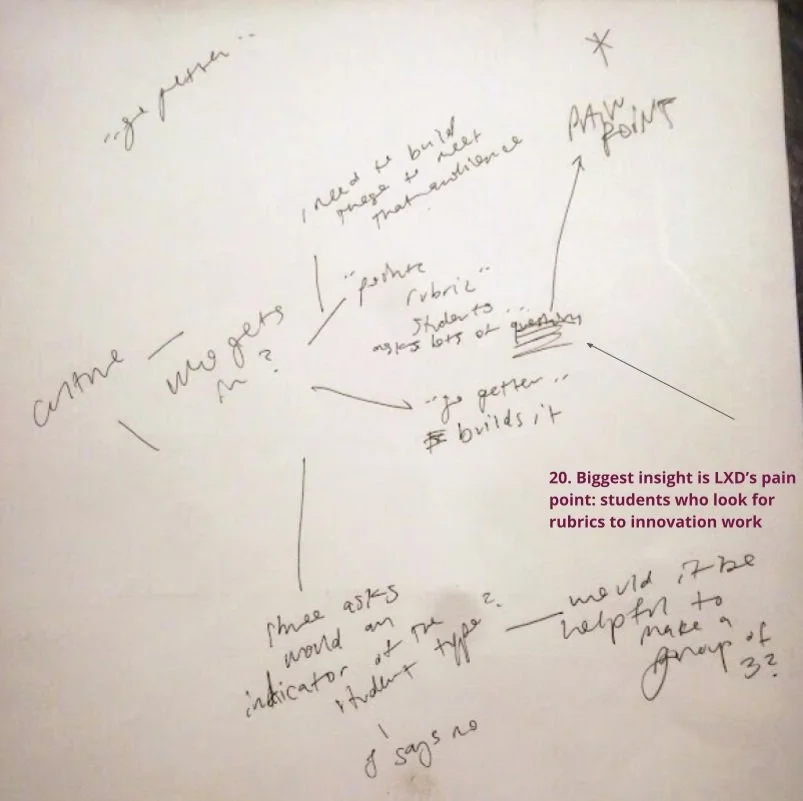 "go getter"
*
PAIN
POINT
need to build
these to meet
that audience
"points
rubric"
students...
asks lots of questions
culture
who gets
in?
"go getter"
builds it
20. Biggest insight is LXD's pain
point: students who look for
rubrics to innovation work
three asks
would an
indicator of the
student type?
says no
would it be
helpful to
make a
group of
3?